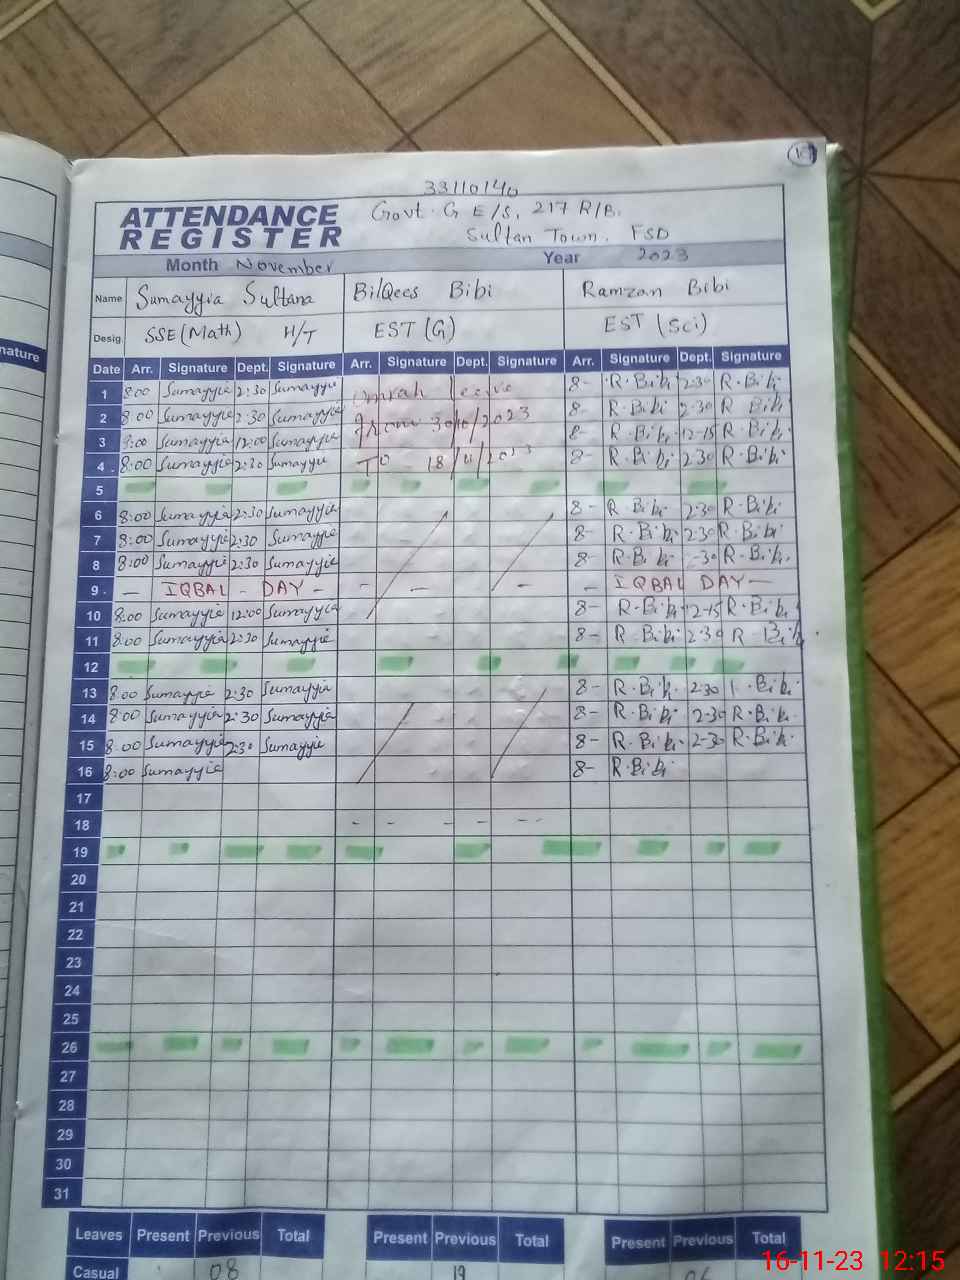 10
33110140
ATTENDANCE REGISTER
Govt. G E/S, 217 R/B.
Sultan Town. FSD
Month November Year 2023
Name Sumayyia Sultana BilQees Bibi Ramzan Bibi
Desig. SSE(Math) H/T EST (G) EST (Sci)
nature
Date Arr. Signature Dept. Signature Arr. Signature Dept. Signature Arr. Signature Dept. Signature
1 8:00 Sumayyia 2:30 Sumayyia Umrah leave 8- R.Bibi 2:30 R.Bibi
2 8:00 Sumayyia 2:30 Sumayyia from 30/10/2023 8- R.Bibi 2:30 R Bibi
3 9:00 Sumayyia 12:00 Sumayyia 8- R.Bibi 12-15 R.Bibi
4 8:00 Sumayyia 2:30 Sumayyia To 18/11/2023 8- R.Bibi 2:30 R.Bibi
5
6 8:00 Sumayyia 2:30 Sumayyia 8- R.Bibi 2:30 R.Bibi
7 8:00 Sumayyia 2:30 Sumayyia 8- R.Bibi 2:30 R.Bibi
8 8:00 Sumayyia 2:30 Sumayyia 8- R.Bibi -30 R.Bibi.
9 - IQBAL - DAY - - - - - IQBAL DAY -
10 8:00 Sumayyia 12:00 Sumayyia 8- R.Bibi 12-15 R.Bibi
11 8:00 Sumayyia 2:30 Sumayyia 8- R.Bibi 2:30 R-Bibi
12
13 8:00 Sumayyia 2:30 Sumayyia 8- R.Bibi. 2:30 Bibi.
14 8:00 Sumayyia 2:30 Sumayyia 8- R.Bibi. 2-30 R.Bibi.
15 8:00 Sumayyia 2:30 Sumayyia 8- R.Bibi. 2-30 R.Bibi.
16 8:00 Sumayyia 8- R.Bibi
17
18 - - - - - -
19
20
21
22
23
24
25
26
27
28
29
30
31
Leaves Present Previous Total Present Previous Total Present Previous Total
Casual 08 19
16-11-23 12:15